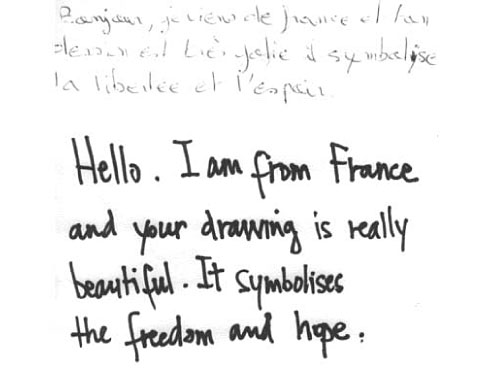 Bonjour, je viens de france et ton
dessin est très jolie il symbolise
la libertée et l'espoir.
Hello. I am from France
and your drawing is really
beautiful. It symbolises
the freedom and hope.